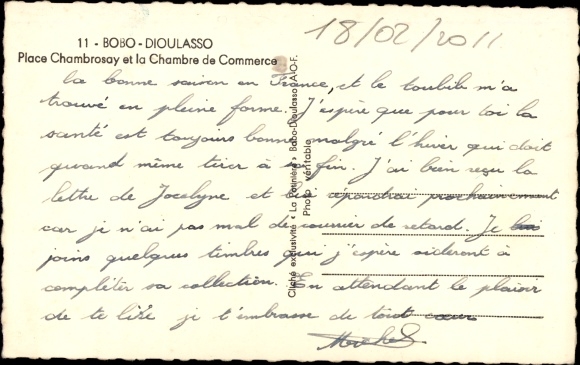 18/02/2011
11 - BOBO-DIOULASSO
Place Chambrosay et la Chambre de Commerce
la bonne saison en France, et le toubib m'a
trouvé en pleine forme. J'espère que pour toi la
santé est toujours bonne malgré l'hiver qui doit
quand même tirer à sa fin. J'ai bien reçu la
lettre de Jocelyne et répondrai prochainement
car je n'ai pas mal de courrier de retard. Je
joins quelques timbres qui j'espère aideront à
compléter sa collection. En attendant le plaisir
de te lire je t'embrasse de tout cœur
Cliché exclusivité « La Potinière » Bobo-Dioulasso A.O.F.
Photo véritable